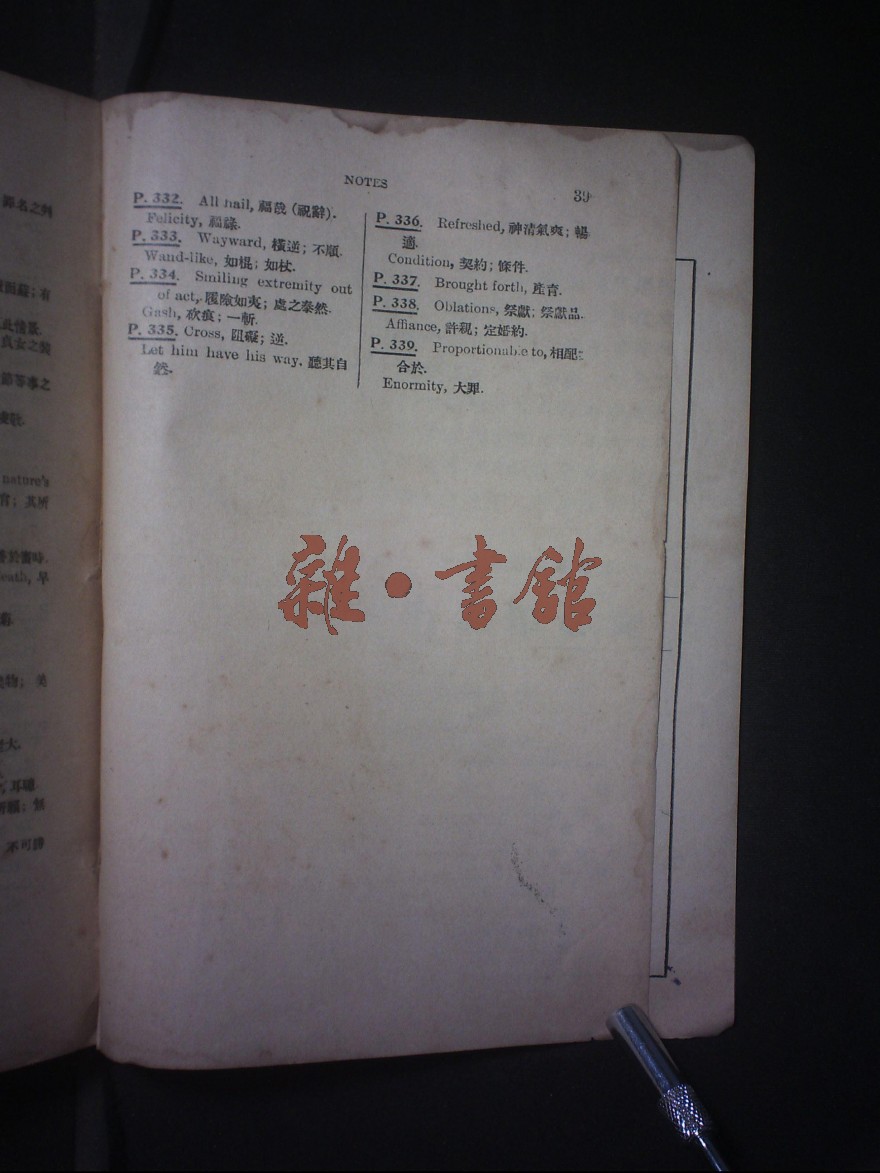 NOTES
39
P. 332. All hail, 福哉 (祝辭).
Felicity, 福祿.
P. 333. Wayward, 橫逆; 不順.
Wand-like, 如棍; 如杖.
P. 334. Smiling extremity out
of act, 履險如夷; 處之泰然.
Gash, 砍痕; 一斬.
P. 335. Cross, 阻礙; 逆.
Let him have his way, 聽其自
然.
P. 336. Refreshed, 神清氣爽; 暢
適.
Condition, 契約; 條件.
P. 337. Brought forth, 產育.
P. 338. Oblations, 祭獻; 祭獻品.
Affiance, 許親; 定婚約.
P. 339. Proportionable to, 相配;
合於.
Enormity, 大罪.
雜·書館
節名之列
有
此情景.
良女之裝
節等事之
nature's
官; 其所
於當時.
eath, 早
物; 美
大.
耳聽
不可